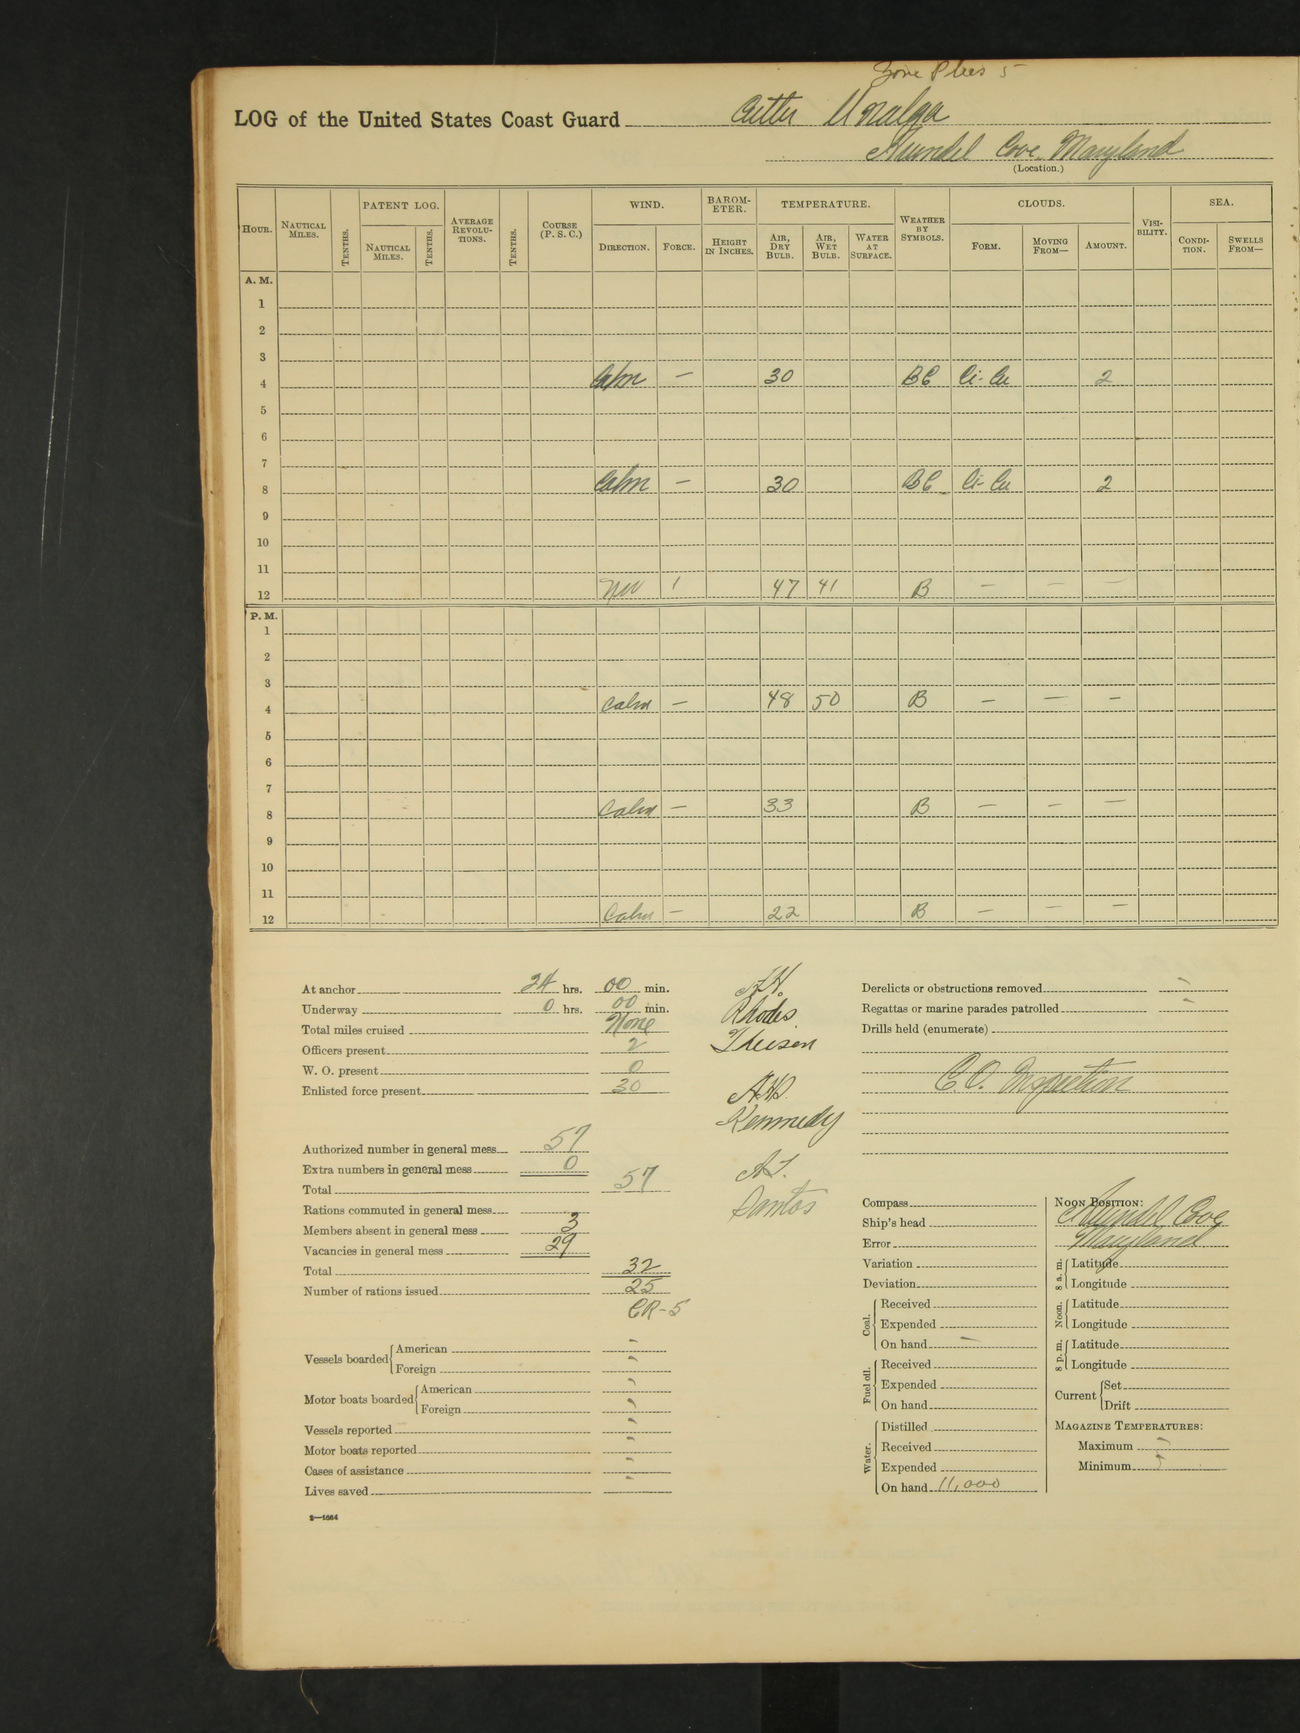 Zone Plus 5
LOG of the United States Coast Guard Cutter Unalga
Arundel Cove, Maryland
(Location.)
HOUR. NAUTICAL MILES. TENTHS. PATENT LOG. NAUTICAL MILES. TENTHS. AVERAGE REVOLUTIONS. TENTHS. COURSE (P. S. C.) WIND. DIRECTION. FORCE. BAROMETER. HEIGHT IN INCHES. TEMPERATURE. AIR, DRY BULB. AIR, WET BULB. WATER AT SURFACE. WEATHER BY SYMBOLS. CLOUDS. FORM. MOVING FROM— AMOUNT. VISIBILITY. SEA. CONDITION. SWELLS FROM—
A. M.
1
2
3
4 Calm — 30 BC Ci-Cu 2
5
6
7
8 Calm — 30 BC Ci-Cu 2
9
10
11
12 NW 1 47 41 B — — —
P. M.
1
2
3
4 Calm — 48 50 B — — —
5
6
7
8 Calm — 33 B — — —
9
10
11
12 Calm — 22 B — — —
At anchor 24 hrs. 00 min.
Underway 0 hrs. 00 min.
Total miles cruised None
Officers present 2
W. O. present 0
Enlisted force present 30
Authorized number in general mess 57
Extra numbers in general mess 0
Total 57
Rations commuted in general mess
Members absent in general mess 3
Vacancies in general mess 29
Total 32
Number of rations issued 25
CR-5
Vessels boarded American -
Foreign -
Motor boats boarded American -
Foreign -
Vessels reported -
Motor boats reported -
Cases of assistance -
Lives saved -
2—1664
Rhodes.
Kennedy
Santos
Derelicts or obstructions removed -
Regattas or marine parades patrolled -
Drills held (enumerate)
C.O. Inspection
Compass
Ship's head
Error
Variation
Deviation
Coal. Received
Expended
On hand —
Fuel oil. Received
Expended
On hand
Water. Distilled
Received
Expended
On hand 11,000
NOON POSITION:
Arundel Cove
Maryland
8 a. m. Latitude
Longitude
Noon. Latitude
Longitude
8 p. m. Latitude
Longitude
Current Set
Drift
MAGAZINE TEMPERATURES:
Maximum -
Minimum -